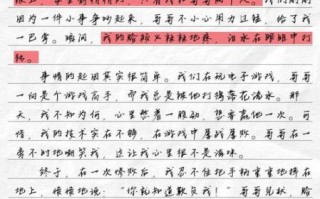 因为一件小事争吵起来，哥哥不小心用力过猛，给了我
一巴掌。瞬间，我的脸颊火辣辣地疼，泪水在眼眶中打
转。
事情的起因其实很简单。我们在玩电子游戏，哥哥
一向是个游戏高手，而我总是被他打得落花流水。那
天，我不知为何，心里憋着一股劲，想要赢他一次。可
惜，我的技术实在不够，在游戏中屡战屡败。哥哥在一
旁不时地嘲笑我，这让我心里很不是滋味。
终于，在一次惨败后，我忍不住把手柄重重地摔在
地上，愤愤地说：“你就知道欺负我！”哥哥见状，脸